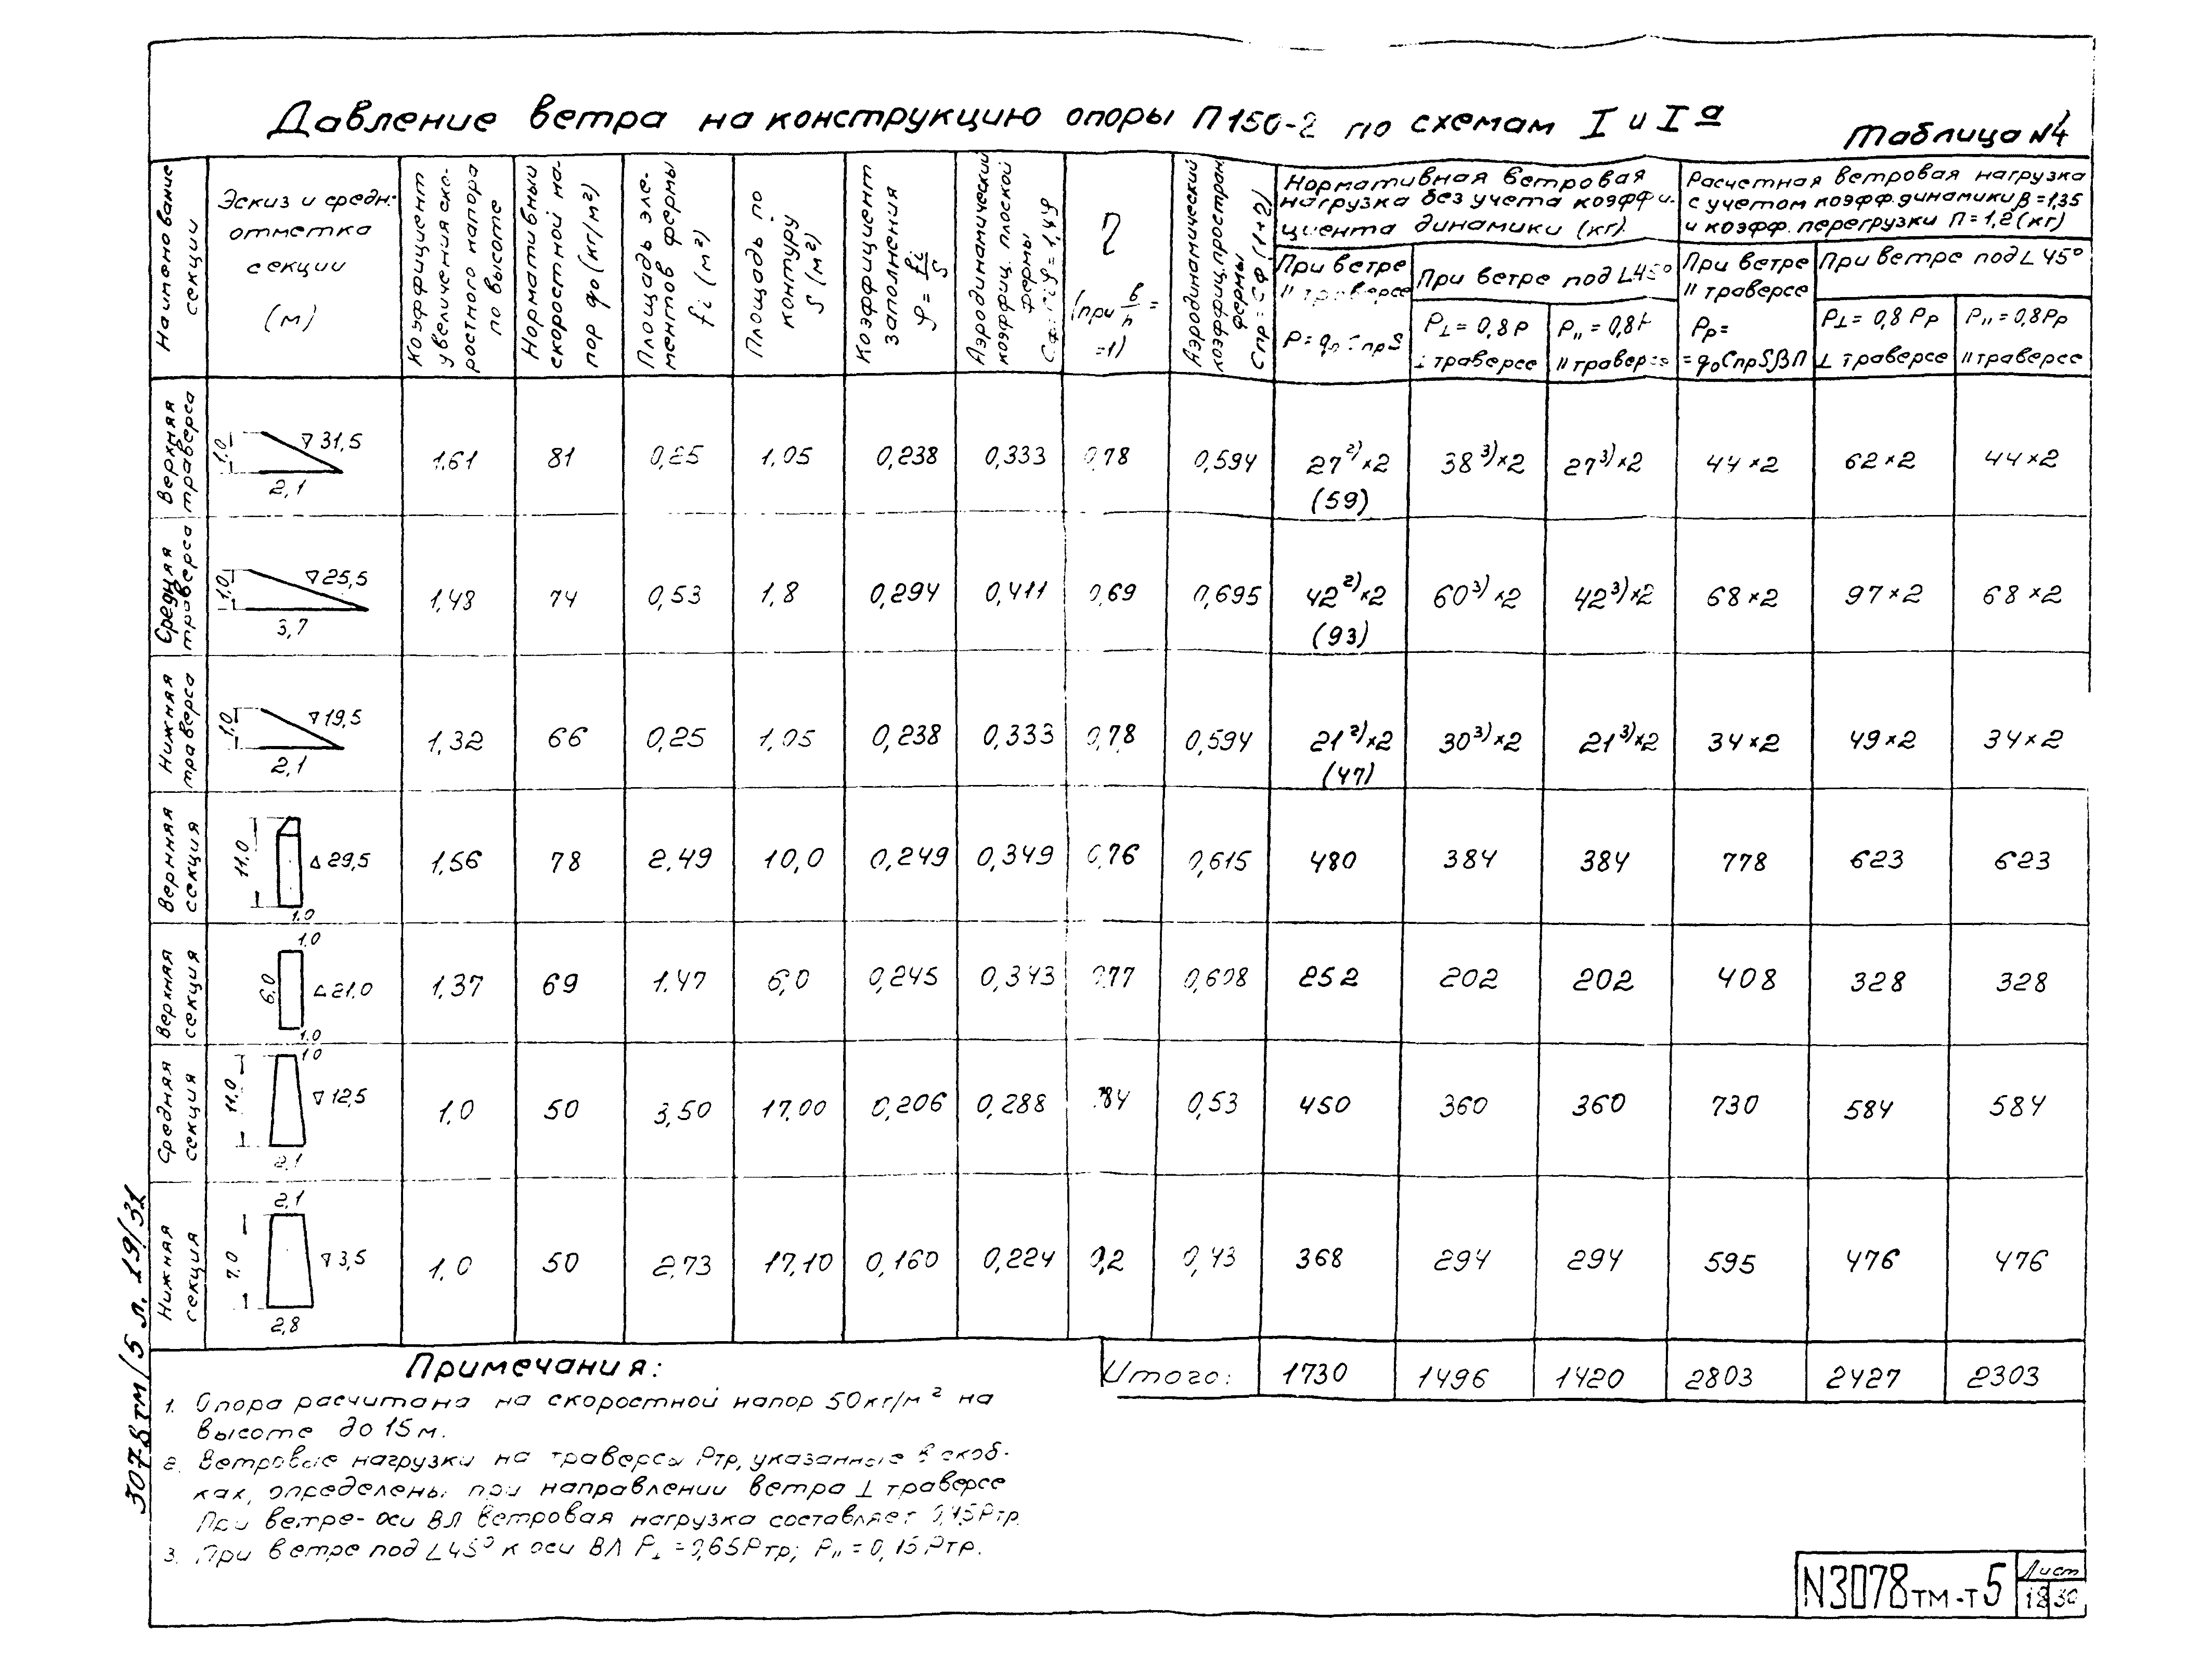 Давление ветра на конструкцию опоры П150-2 по схемам I и Iа
Таблица N4
Наименование секции
Эскиз и средн. отметка секции (м)
Коэффициент увеличения скоростного напора по высоте
Нормативный скоростной напор q₀ (кг/м²)
Площадь элементов фермы fi (м²)
Площадь по контуру S (м²)
Коэффициент заполнения φ = fi/S
Аэродинамический коэффиц. плоской фермы = 1,4φ
η (при в/h = =1)
Аэродинамический коэффиц. простран. фермы Спр = Сф (1+η)
Нормативная ветровая нагрузка без учета коэффициента динамики (кг)
Расчетная ветровая нагрузка с учетом коэфф. динамики β = 1,35 и коэфф. перегрузки П = 1,2 (кг)
При ветре // траверсе
При ветре под ∟45°
При ветре // траверсе
При ветре под ∟45°
P = q₀ Спр S
P⊥ = 0,8 P ⊥ траверсе
P// = 0,8 P // траверсе
Pр = = q₀ Спр S β П
P⊥ = 0,8 Pр ⊥ траверсе
P// = 0,8 Pр // траверсе
Верхняя траверса 1,0 2,1 ▽31,5 1,61 81 0,25 1,05 0,238 0,333 0,78 0,594 27²⁾×2 (59) 38³⁾×2 27³⁾×2 44×2 62×2 44×2
Средняя траверса 1,0 3,7 ▽25,5 1,48 74 0,53 1,8 0,294 0,411 0,69 0,695 42²⁾×2 (93) 60³⁾×2 42³⁾×2 68×2 97×2 68×2
Нижняя траверса 1,0 2,1 ▽19,5 1,32 66 0,25 1,05 0,238 0,333 0,78 0,594 21²⁾×2 (47) 30³⁾×2 21³⁾×2 34×2 49×2 34×2
Верхняя секция 11,0 1,0 ∆29,5 1,56 78 2,49 10,0 0,249 0,349 0,76 0,615 480 384 384 778 623 623
Верхняя секция 1,0 6,0 1,0 ∆21,0 1,37 69 1,47 6,0 0,245 0,343 0,77 0,608 252 202 202 408 328 328
Средняя секция 1,0 11,0 2,1 ▽12,5 1,0 50 3,50 17,00 0,206 0,288 84 0,53 450 360 360 730 584 584
Нижняя секция 2,1 7,0 2,8 ▽3,5 1,0 50 2,73 17,10 0,160 0,224 0,2 0,43 368 294 294 595 476 476
Итого: 1730 1496 1420 2803 2427 2303
Примечания:
1. Опора расчитана на скоростной напор 50кг/м² на
высоте до 15м.
2. Ветровые нагрузки на траверсы Pтр, указанные в скоб-
ках, определены при направлении ветра ⊥ траверсе
При ветре - оси ВЛ ветровая нагрузка составляет 0,45Pтр.
3. При ветре под ∟45° к оси ВЛ P⊥ = 0,65Pтр;
3078тм/5 л. 19/31
N3078тм-т5
Лист
18 30